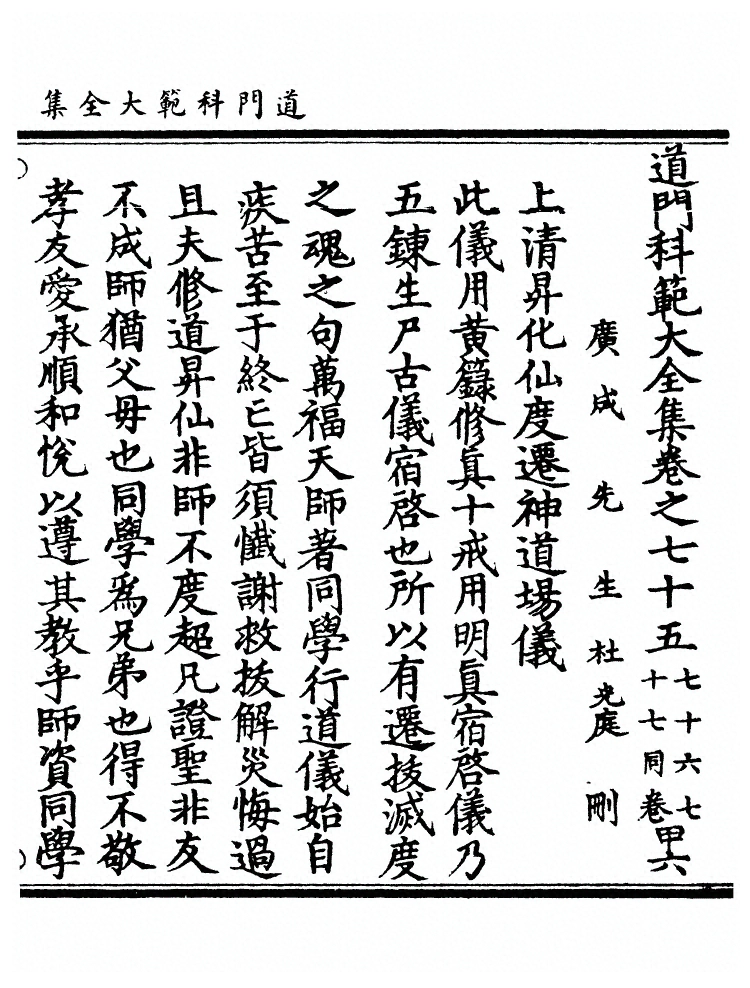 道門科範大全集
道門科範大全集卷之七十五七十六七十七同卷 甲六
廣成先生杜光庭刪
上清昇化仙度遷神道場儀
此儀用黃籙修眞十戒用明眞宿啓儀乃
五鍊生尸古儀宿啓也所以有遷拔滅度
之魂之句萬福天師著同學行道儀始自
疾苦至于終亡皆須懺謝救拔解災悔過
且夫修道昇仙非師不度超凡證聖非友
不成師猶父母也同學爲兄弟也得不敬
孝友愛承順和悅以遵其教乎師資同學